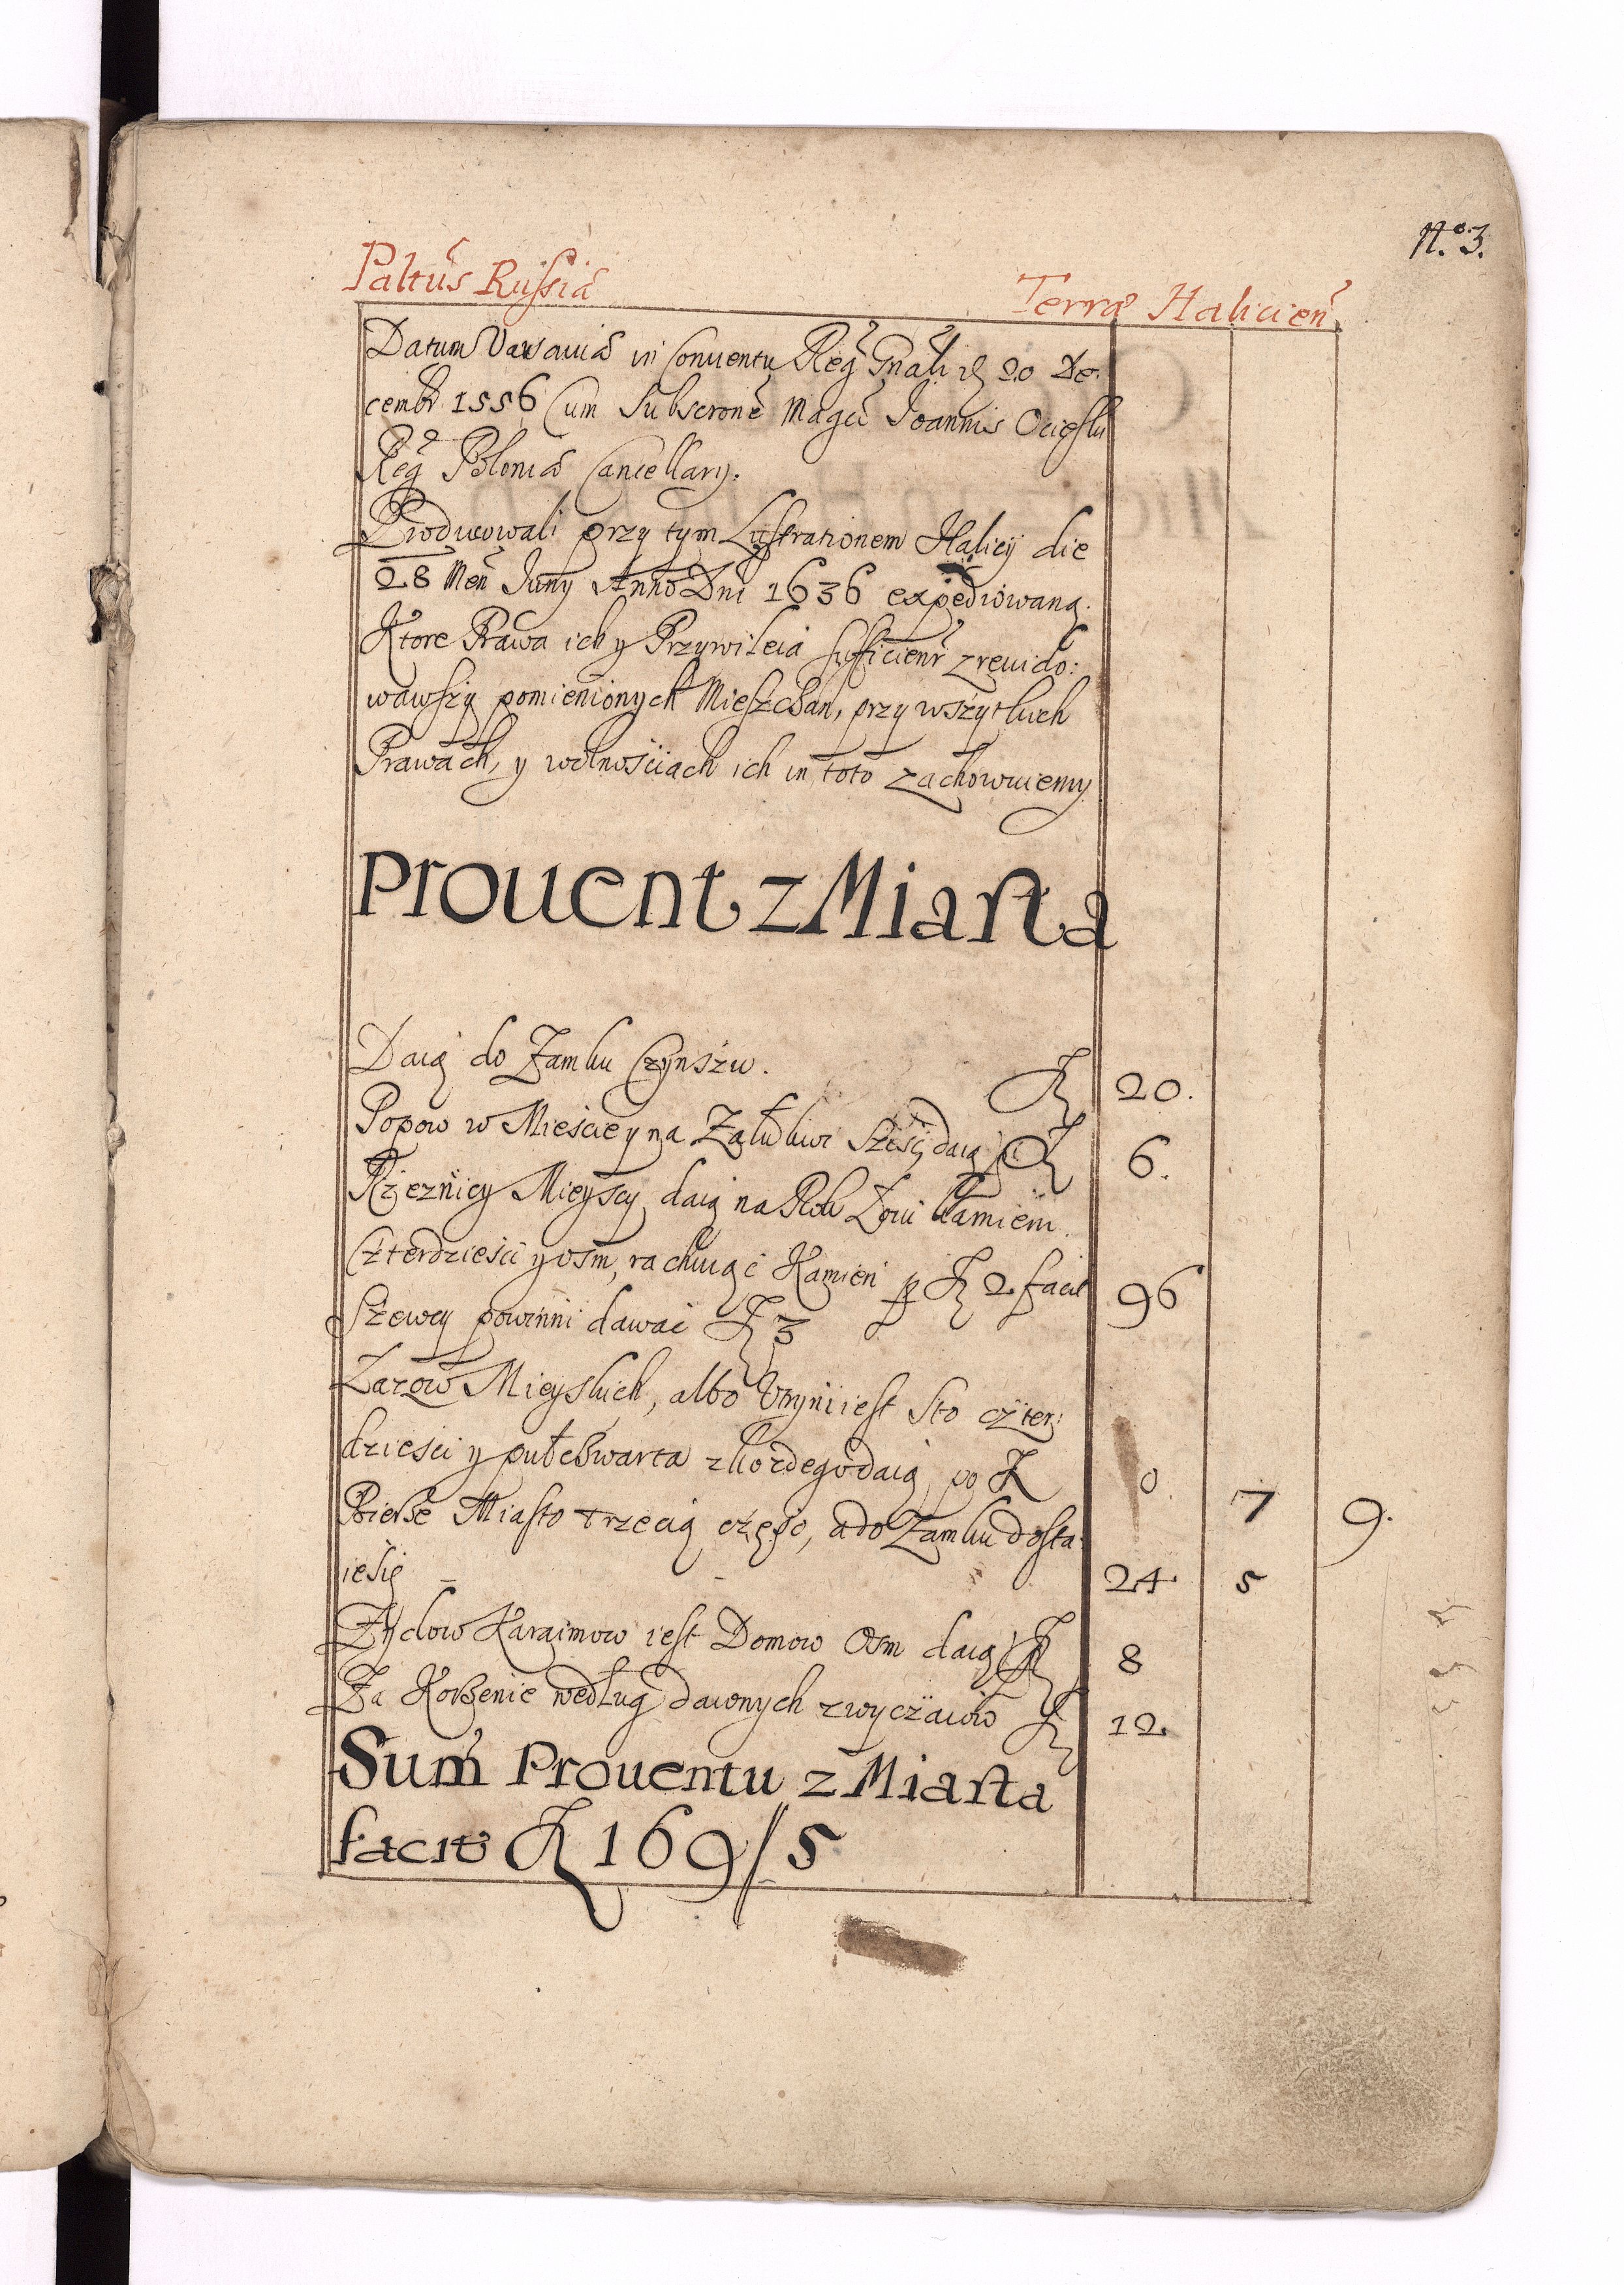 N.º 3.
Paltūs Russiæ Terræ Halicień
Datum Varsauiæ in Conuentu Regⁱ Gnāli d 20 De:
cembr 1556 Cum Subscrone Magci Joannis Ocieski
Regⁱ Poloniæ Cancellarij.
Producowali przy tym Lustrationem Halicij die
28 Men Juny Anno Dni 1636 expediowaną.
Ktore Prawa ich y Przywileia sufficienr zreuido:
wawszy pomienionych Mieszchan, przy wszytkich
Prawach, y wolnościach ich in toto zachowuiemy
Prouent z Miasta
Daią do Zamku Czynszu. Zł 20.
Popow w Mieście y na Załukwi sześć, daią p. Zł 6.
Rzeznicy Mieyscy daią na Rok Łoiu kamieni
czterdzieści y osm, rachuiąc Kamień p Zł 2 facit 96
Szewcy powinni dawać Zł 3
Łazow Mieyskich, albo Vrzyni iest Sto czter:
dzieści y pułchwarta z kożdego daią, po Zł 0. 7 9.
Bierze Miasto trzecią część, a do Zamku dosta:
ie się - - 24 5
Żydow Karaimow iest Domow Osm daią p Zł 8
Za Korzenie według dawnych zwyczaiow Zł 12
Sum̄ Prouentu z Miasta
facit Zł 169 / 5